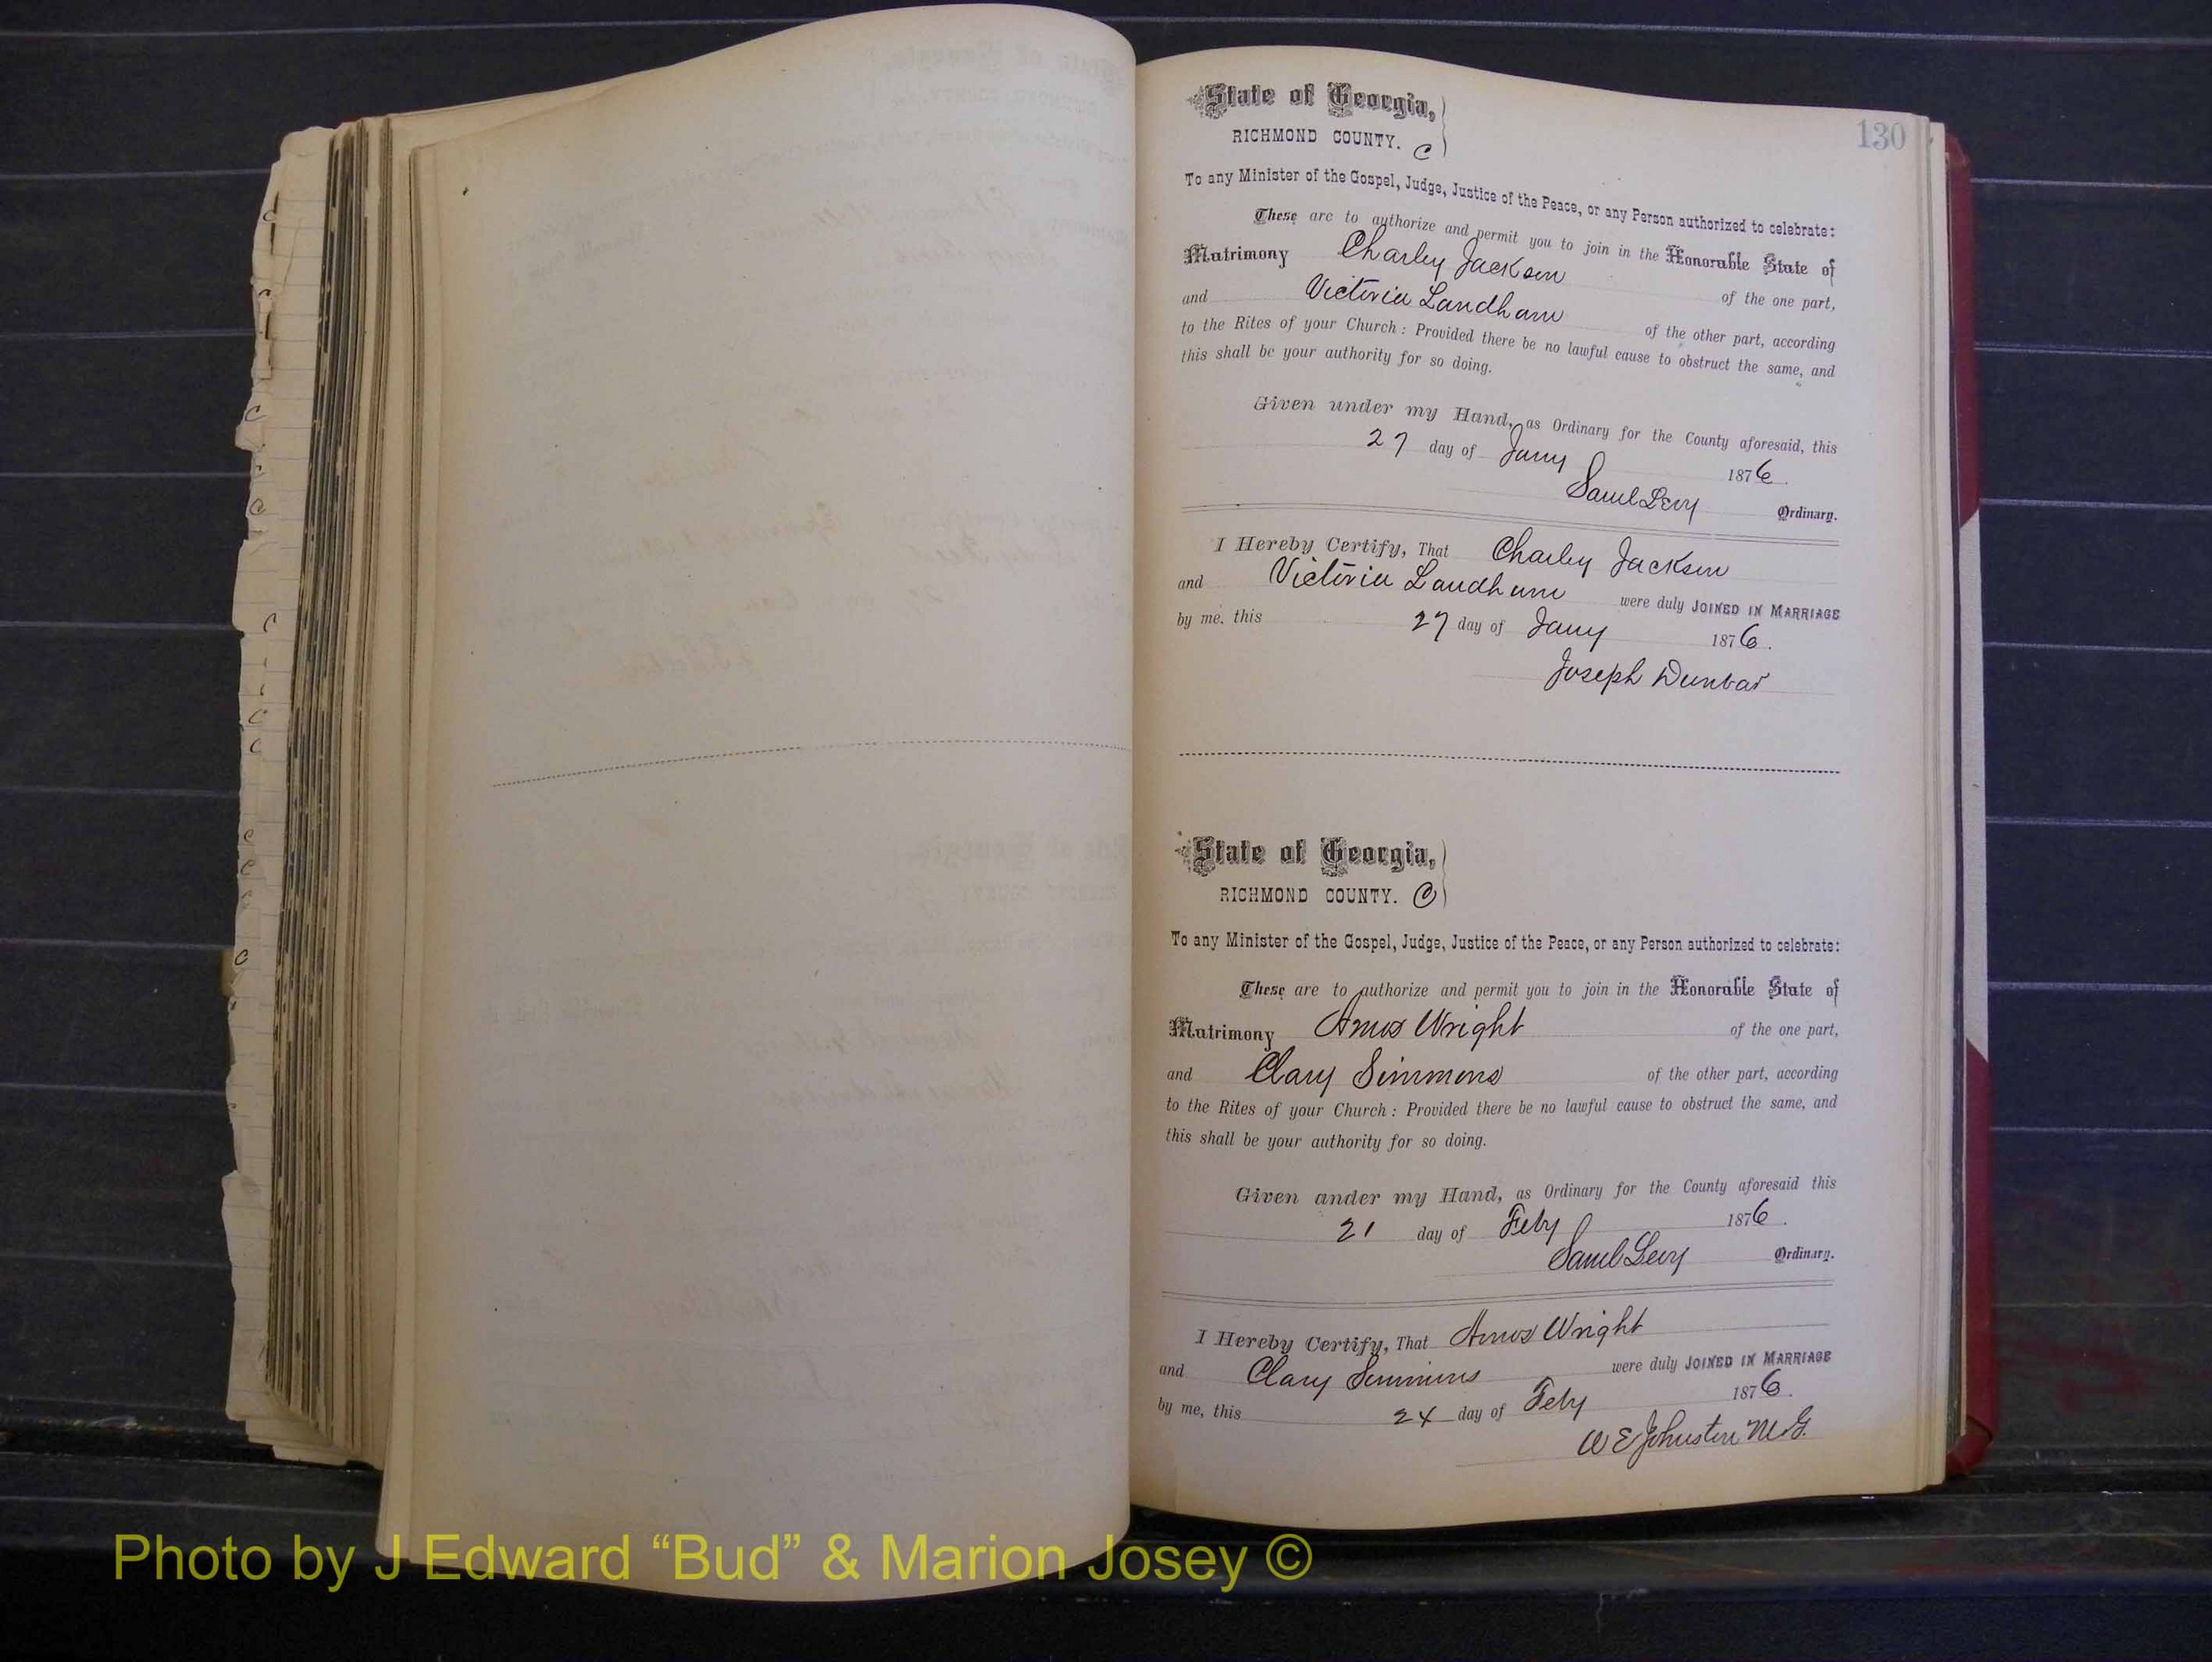 130
State of Georgia,
RICHMOND COUNTY. C
To any Minister of the Gospel, Judge, Justice of the Peace, or any Person authorized to celebrate:
These are to authorize and permit you to join in the Honorable State of
Matrimony Charley Jackson of the one part,
and Victoria Landham of the other part, according
to the Rites of your Church: Provided there be no lawful cause to obstruct the same, and
this shall be your authority for so doing.
Given under my Hand, as Ordinary for the County aforesaid, this
27 day of Jany 1876.
Saml Levy Ordinary.
I Hereby Certify, That Charley Jackson
and Victoria Landham were duly JOINED IN MARRIAGE
by me, this 27 day of Jany 1876.
Joseph Dunbar
State of Georgia,
RICHMOND COUNTY. C
To any Minister of the Gospel, Judge, Justice of the Peace, or any Person authorized to celebrate:
These are to authorize and permit you to join in the Honorable State of
Matrimony Amos Wright of the one part,
and Clary Simmons of the other part, according
to the Rites of your Church: Provided there be no lawful cause to obstruct the same, and
this shall be your authority for so doing.
Given under my Hand, as Ordinary for the County aforesaid this
21 day of Feby 1876.
Saml Levy Ordinary.
I Hereby Certify, That Amos Wright
and Clary Simmons were duly JOINED IN MARRIAGE
by me, this 24 day of Feby 1876.
W E Johnston M.G.
Photo by J Edward “Bud” & Marion Josey ©